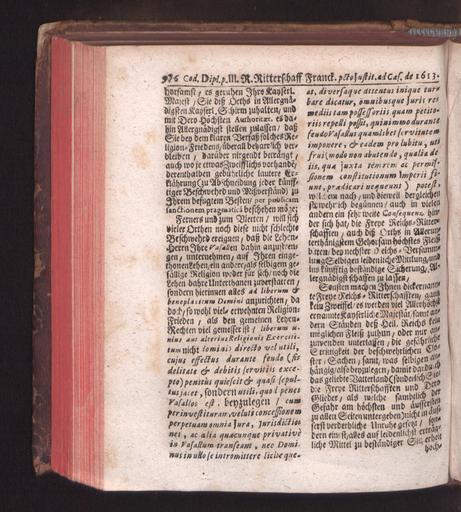 976 Cod. Dipl. p. III. R. Ritterschaff Franck. pcto Justit. ad Cæs. de 1613.
horsamst, es geruhen Ihro Kayserl.
Majest, Sie diß Orths in Allergnä-
digsten Kayserl. Schirm zuhalten, und
mit Dero Höchsten Authoritæt. es da-
hin Allergnädigst stellen zulassen, daß
Sie bey dem klaren Verfaß solches Re-
ligion-Friedens überall beharrlich ver-
bleiben, darüber nirgends betrangt,
auch wo je etwas Zweiffliches vorhande,
derenthalben gebührliche lautere Er-
klährung (zu Abschneidung jeder künff-
tiger Beschwehrd und Mißverständ) zu
Ihrem befugten Besten, per publicam
sanctionem pragmaticā beschehen möge;
Ferners und zum Vierten, will sich
vieler Orthen noch diese nicht schlechte
Beschwehrd ereignen, daß die Lehens-
Herrn Ihre Vasallen dahin anzustren-
gen, unternehmen, auf Ihren einge-
thonen Lehen, ein ander, als selbigen ge-
fällige Religion weder für sich, noch die
Lehen-bahre Unterthanen zuverstatten,
sondern hierinnen alles ad liberum &
beneplacitum Domini anzurichten, da
doch, so wohl viel-erwehnten Religion-
Frieden, als den gemeinen Lehen-
Rechten viel gemesser ist, liberum u-
nius aut alterius Religionis Exerciti-
um nicht domini directo vel utili,
cujus effectus durante feudo (fi-
delitate & debitis servitiis exce-
ptis) penitus quiescit & quasi sepul-
tus jacet, sondern utili, quod penes
Vasallos est, beyzulegen, cum
per investituram, veluti concessionem
perpetuam omnia Jura, Jurisdictio-
nes, ac alia quæcunque privativè
in Vasallum transeant, nec Domi-
nus in ullo se intromittere licitè que-
at, diversaque attentus inique tur-
bare dicatur, omnibusque Juris re-
mediis tam possessoriis quam petito-
riis repelli possit, quinimmo durante
feudo Vasallus quamlibet servitutem
imponere, & eadem pro lubitu, uti
frui (modo non abutendo, qualia de
iis, quæ juxta temrem ac permis-
sionem constitutionum Imperii fi-
unt, prædicari nequeunt) potest,
welchem nach, und bieweil dergleichen
starckwehrlich beginnen, auch in vielen
andern ein sehr weite Consequenz hin-
der sich hat, die Freye Reichs-Ritter-
schafften, auch diß Orths in Allerun-
terthänigstem Gehorsam höchstes Fleiß
bitten, bey nechster Reichs-Versamm-
lung Selbigen leidenliche Mittlung, und
ins künfftig beständige Sicherung, Al-
lergnädigst schaffen zu lassen,
Sonsten machen Ihnen dickernann-
te Freye Reichs-Ritterschafften, gantz
kein Zweiffel es werden viel Allerhöchst
ernannte Kayserliche Majestät, samt an-
dern Ständen deß Heil. Reichs Ihro
möglichen Fleiß zuthun, oder mit an-
zuwenden unterlassen, die gefährliche
Strittigkeit der beschwehrlichen Clö-
ster-Sachen, samt, was selbigen an-
hängig, also beyzulegen, damit dardurch
das geliebte Vatterland (sonderlich Sie)
die Freye Ritterschafften und Dero
Glieder, als welche samtlich der
Gefahr am höchsten und äussersten
zu allen Seiten untergeben) nicht in äus-
serst verderbliche Unruhe gesetzt, son-
dern einst, alles auf leidenlichst erträg-
liche Mittel zu beständiger Sicherheit
höch-